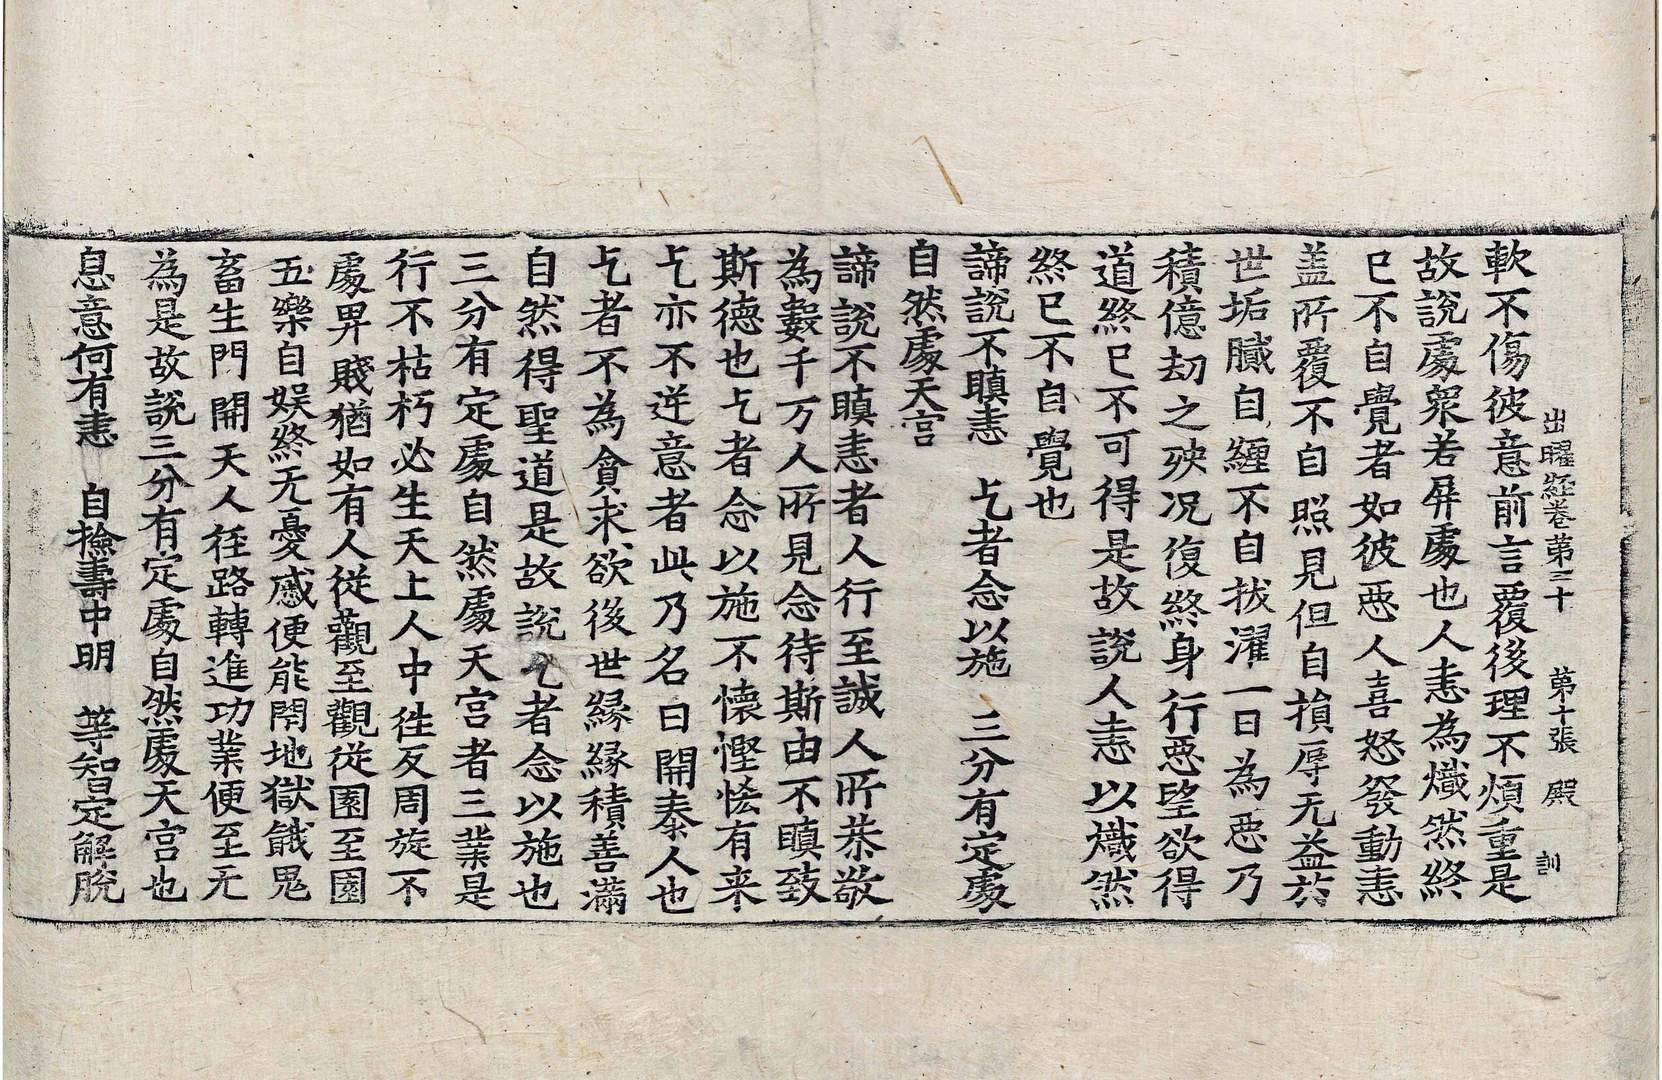 出曜經卷第三十 第十張 殿 訓
軟不傷彼意前言覆後理不煩重是
故說處衆若屏處也人恚為熾然終
已不自覺者如彼惡人喜怒發動恚
盖所覆不自照見但自損辱无益於
世垢膩自纏不自拔濯一日為惡乃
積億劫之殃况復終身行惡望欲得
道終已不可得是故說人恚以熾然
終已不自覺也
諦說不瞋恚 乞者念以施 三分有定處
自然處天宮
諦說不瞋恚者人行至誠人所恭敬
為數千万人所見念待斯由不瞋致
斯德也乞者念以施不懷慳悋有来
乞亦不逆意者此乃名曰開泰人也
乞者不為貪求欲後世緣緣積善滿
自然得聖道是故說乞者念以施也
三分有定處自然處天宮者三業是
行不枯朽必生天上人中徃反周旋不
處畀賤猶如有人從觀至觀從園至園
五樂自娱終无憂慼便能閇地獄餓鬼
畜生門開天人徑路轉進功業便至无
為是故說三分有定處自然處天宮也
息意何有恚 自撿壽中明 等智定解脫